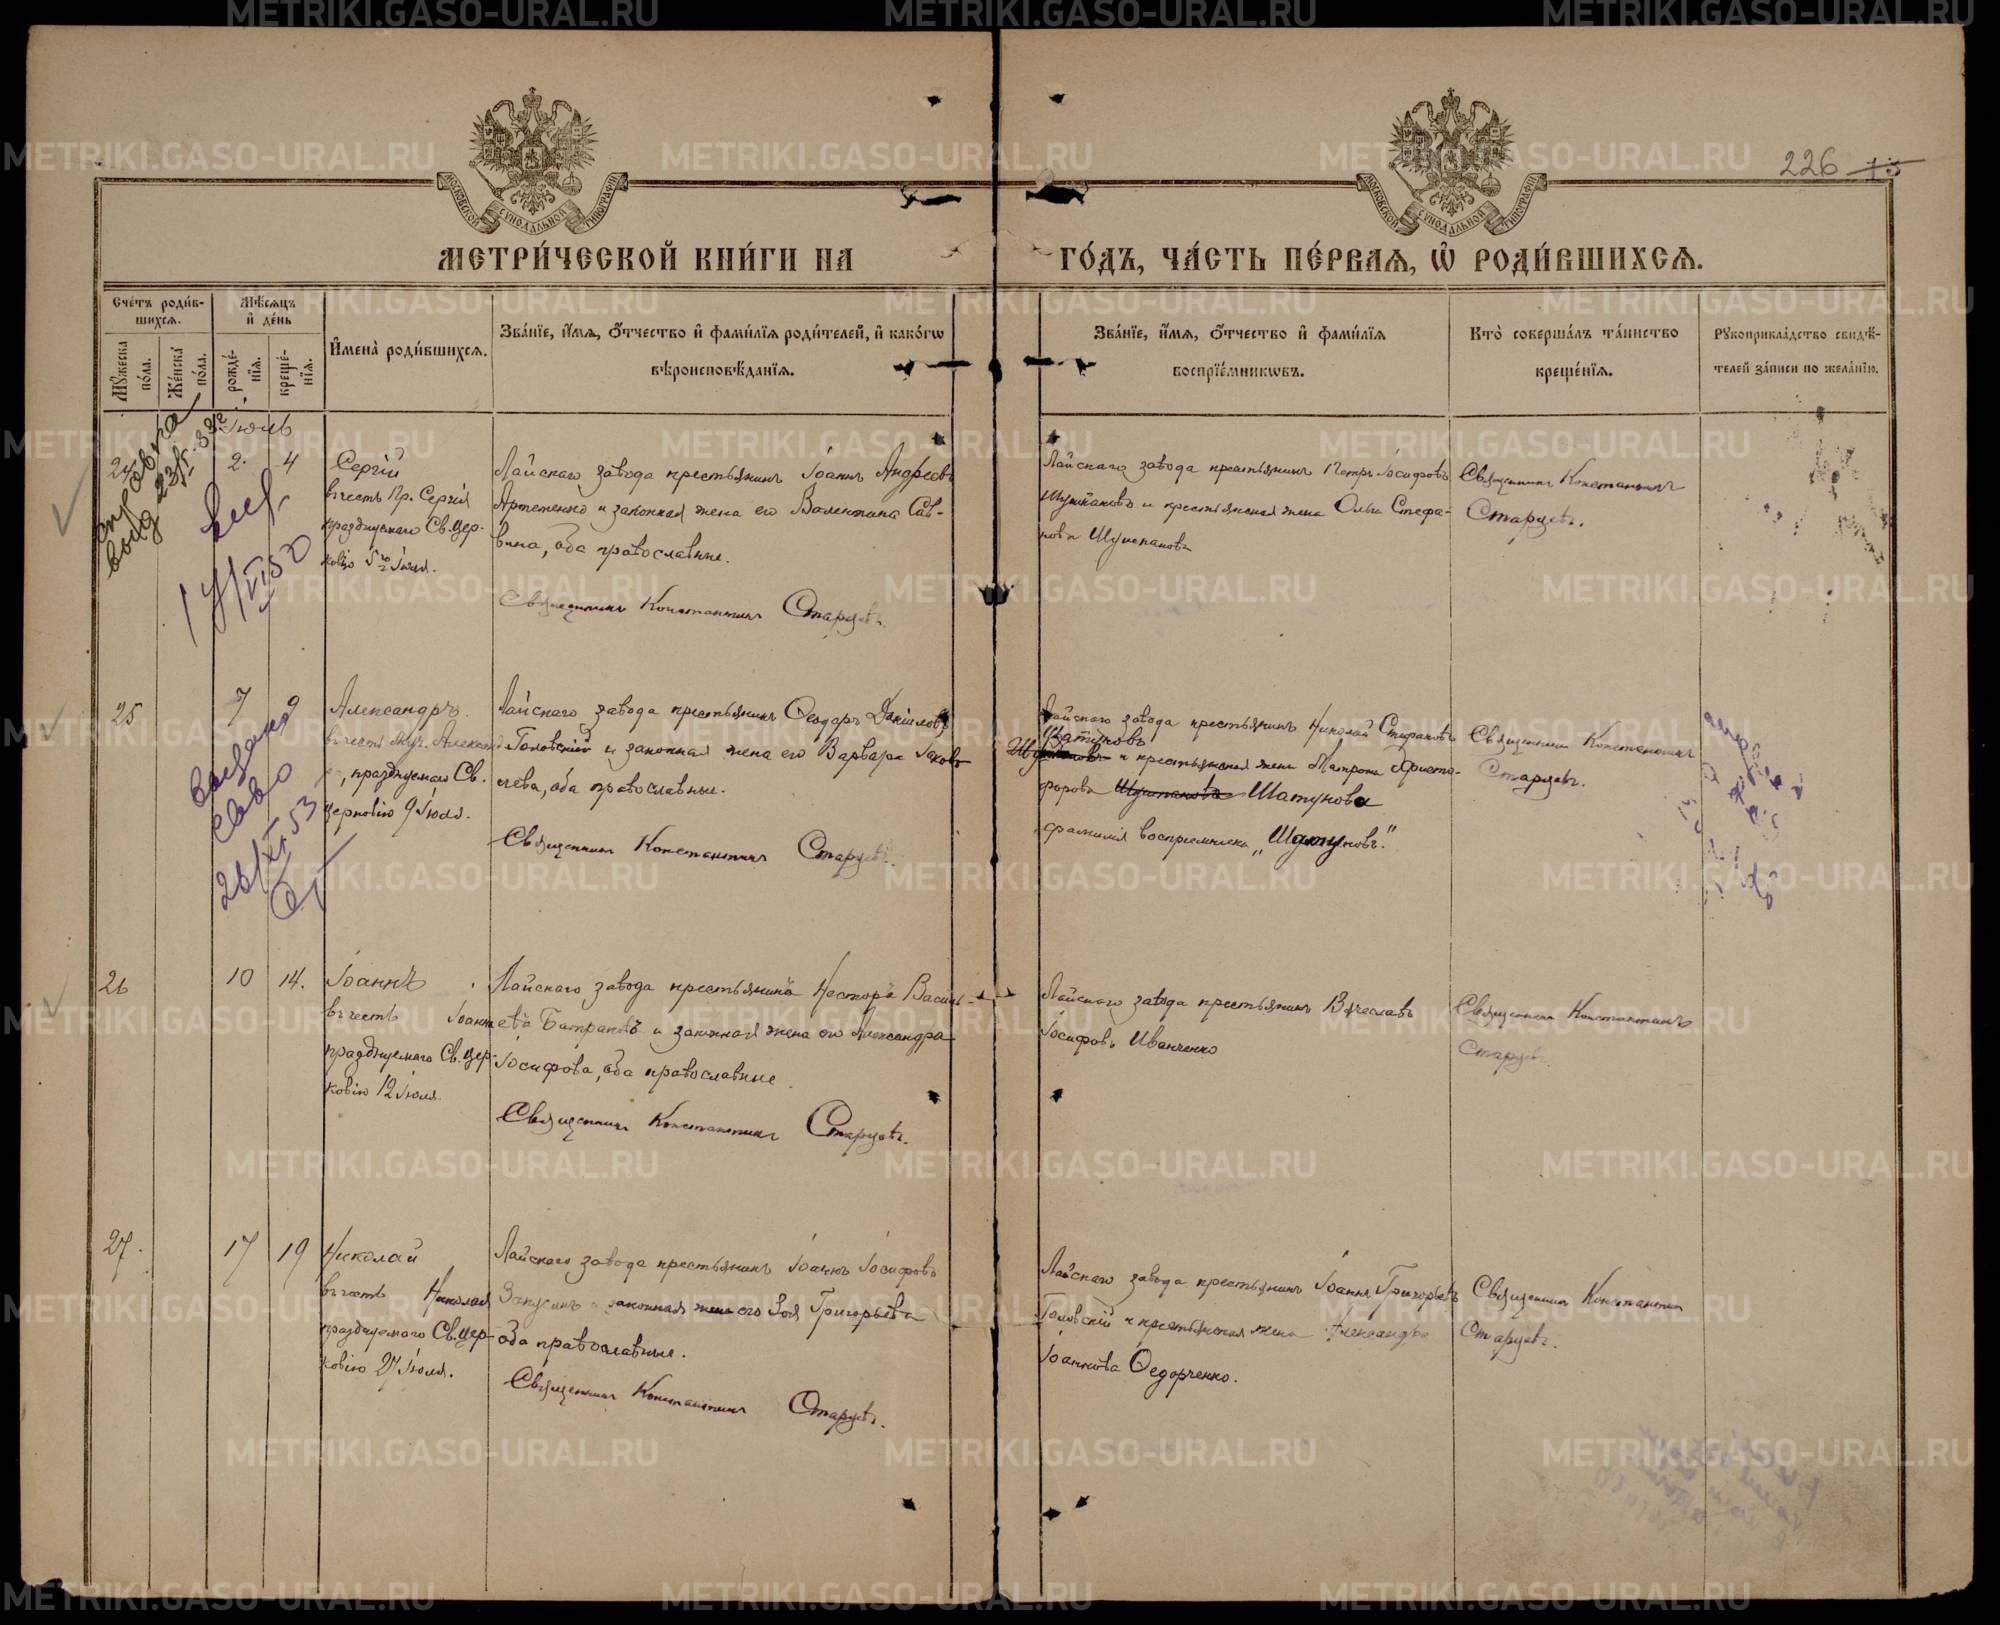 226 75
МОСКОВСКОЙ СѴНОДАЛЬНОЙ ТИПОГРАФІИ
МОСКОВСКОЙ СѴНОДАЛЬНОЙ ТИПОГРАФІИ
МЕТРИ́ЧЕСКОЙ КНИ́ГИ НА ГО́ДЪ, ЧА́СТЬ ПЕ́РВАѦ, Ѡ҆ РОДИ́ВШИХСѦ.
Сче́тъ роди́в-
шихсѧ.
Мꙋ́жеска по́ла.
Же́нска по́ла.
Мѣ́сѧцъ
и҆ де́нь
рожде́-
нїѧ.
креще́-
нїѧ.
И҆мена̀ роди́вшихсѧ.
Зва́нїе, и҆́мѧ, ѻ҆́тчество и҆ фамн́лїѧ роди́телей, и҆ како́гѡ
вѣроисповѣ́данїѧ.
Зва́нїе, и҆́мѧ, ѻ҆́тчество и҆ фами́лїѧ
воспрїе́мникѡвъ.
Кто̀ соверша́лъ та́инство
креще́нїѧ.
Рꙋкоприкла́дство свидѣ́-
телей за́писи по жела́нїю.
справка
выд 23/
Іюль
24 2 4
Сергій
въ честь Пр. Сергія
празднуемаго Св. Цер-
ковію 5го Іюля.
Лайскаго завода крестьянинъ Іоаннъ Андреевъ
Артеменко и законная жена его Валентина Сав-
вина, оба православные.
Священникъ Константинъ Старцевъ.
Лайскаго завода крестьянинъ Петръ Іосифовъ
Шушпановъ и крестьянская жена Ольга Стефа-
нова Шушпанова
Священникъ Константинъ
Старцевъ.
25 7 9
выдано
св-во
26/XI 53
Александръ
въ честь Муч. Алексан
празднуемаго Св.
церковію 9 Іюля.
Лайскаго завода крестьянинъ Ѳеодоръ Даніиловъ
Головскій и законная жена его Варвара Іаков-
лева, оба православные.
Священникъ Константинъ Старцевъ.
Лайскаго завода крестьянинъ Николай Стефановъ
Шатуновъ
и крестьянская жена Матрона Христо-
форова Шушпанова Шатунова
фамилія воспріемника „Шатуновъ“.
Священникъ Константинъ
Старцевъ.
26 10 14.
Іоаннъ
въ честь Іоанн
празднуемаго Св. Цер-
ковію 12 Іюля.
Лайскаго завода крестьянинъ Несторъ Василь-
евъ Батракъ и законная жена его Александра
Іосифова, оба православные.
Священникъ Константинъ Старцевъ.
Лайскаго завода крестьянинъ Вячеславъ
Іосифовъ Иванченко
Священникъ Константинъ
Старцевъ.
27. 17 19
Николай
въ честь Николая
празднуемаго Св. Цер-
ковію 27 Іюля.
Лайскаго завода крестьянинъ Іоаннъ Іосифовъ
и законная жена его Зоя Григорьева
оба православные.
Священникъ Константинъ Старцевъ.
Лайскаго завода крестьянинъ Іоаннъ Григорьевъ
Головскій и крестьянская жена Александра
Іоаннова Ѳедорченко.
Священникъ Константинъ
Старцевъ.
METRIKI.GASO-URAL.RU